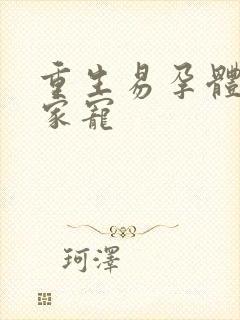 重生易孕體
家寵
珂澤